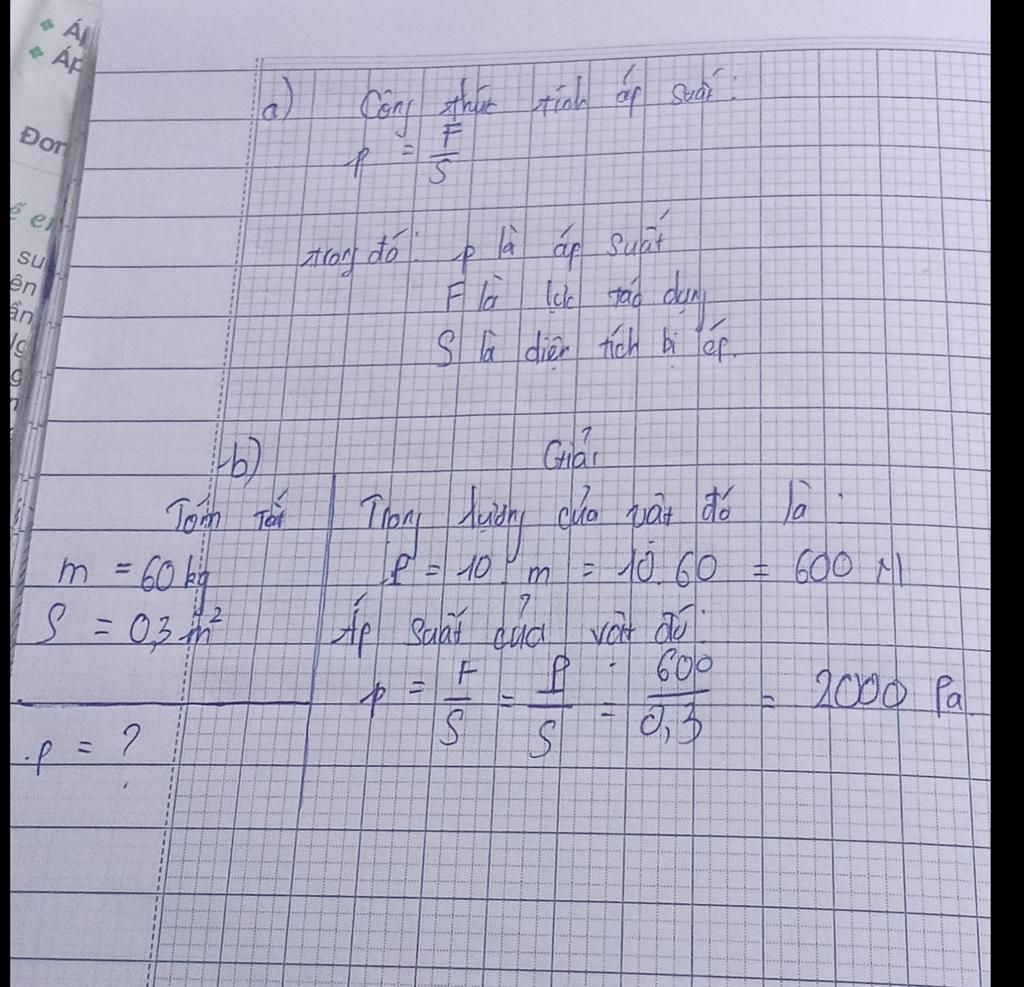 Áp
Áp
Đơn
ế en
su
ên
ần
g
a) Công thức tính áp suất:
p = F/S
trong đó: p là áp suất
F là lực tác dụng
S là diện tích bị ép.
b) Giải
Tóm tắt
Trọng lượng của vật đó là:
m = 60 kg
P = 10 . m = 10.60 = 600 N
S = 0,3 m²
Áp suất của vật đó:
p = F/S = P/S = 600/0,3 = 2000 Pa
p = ?